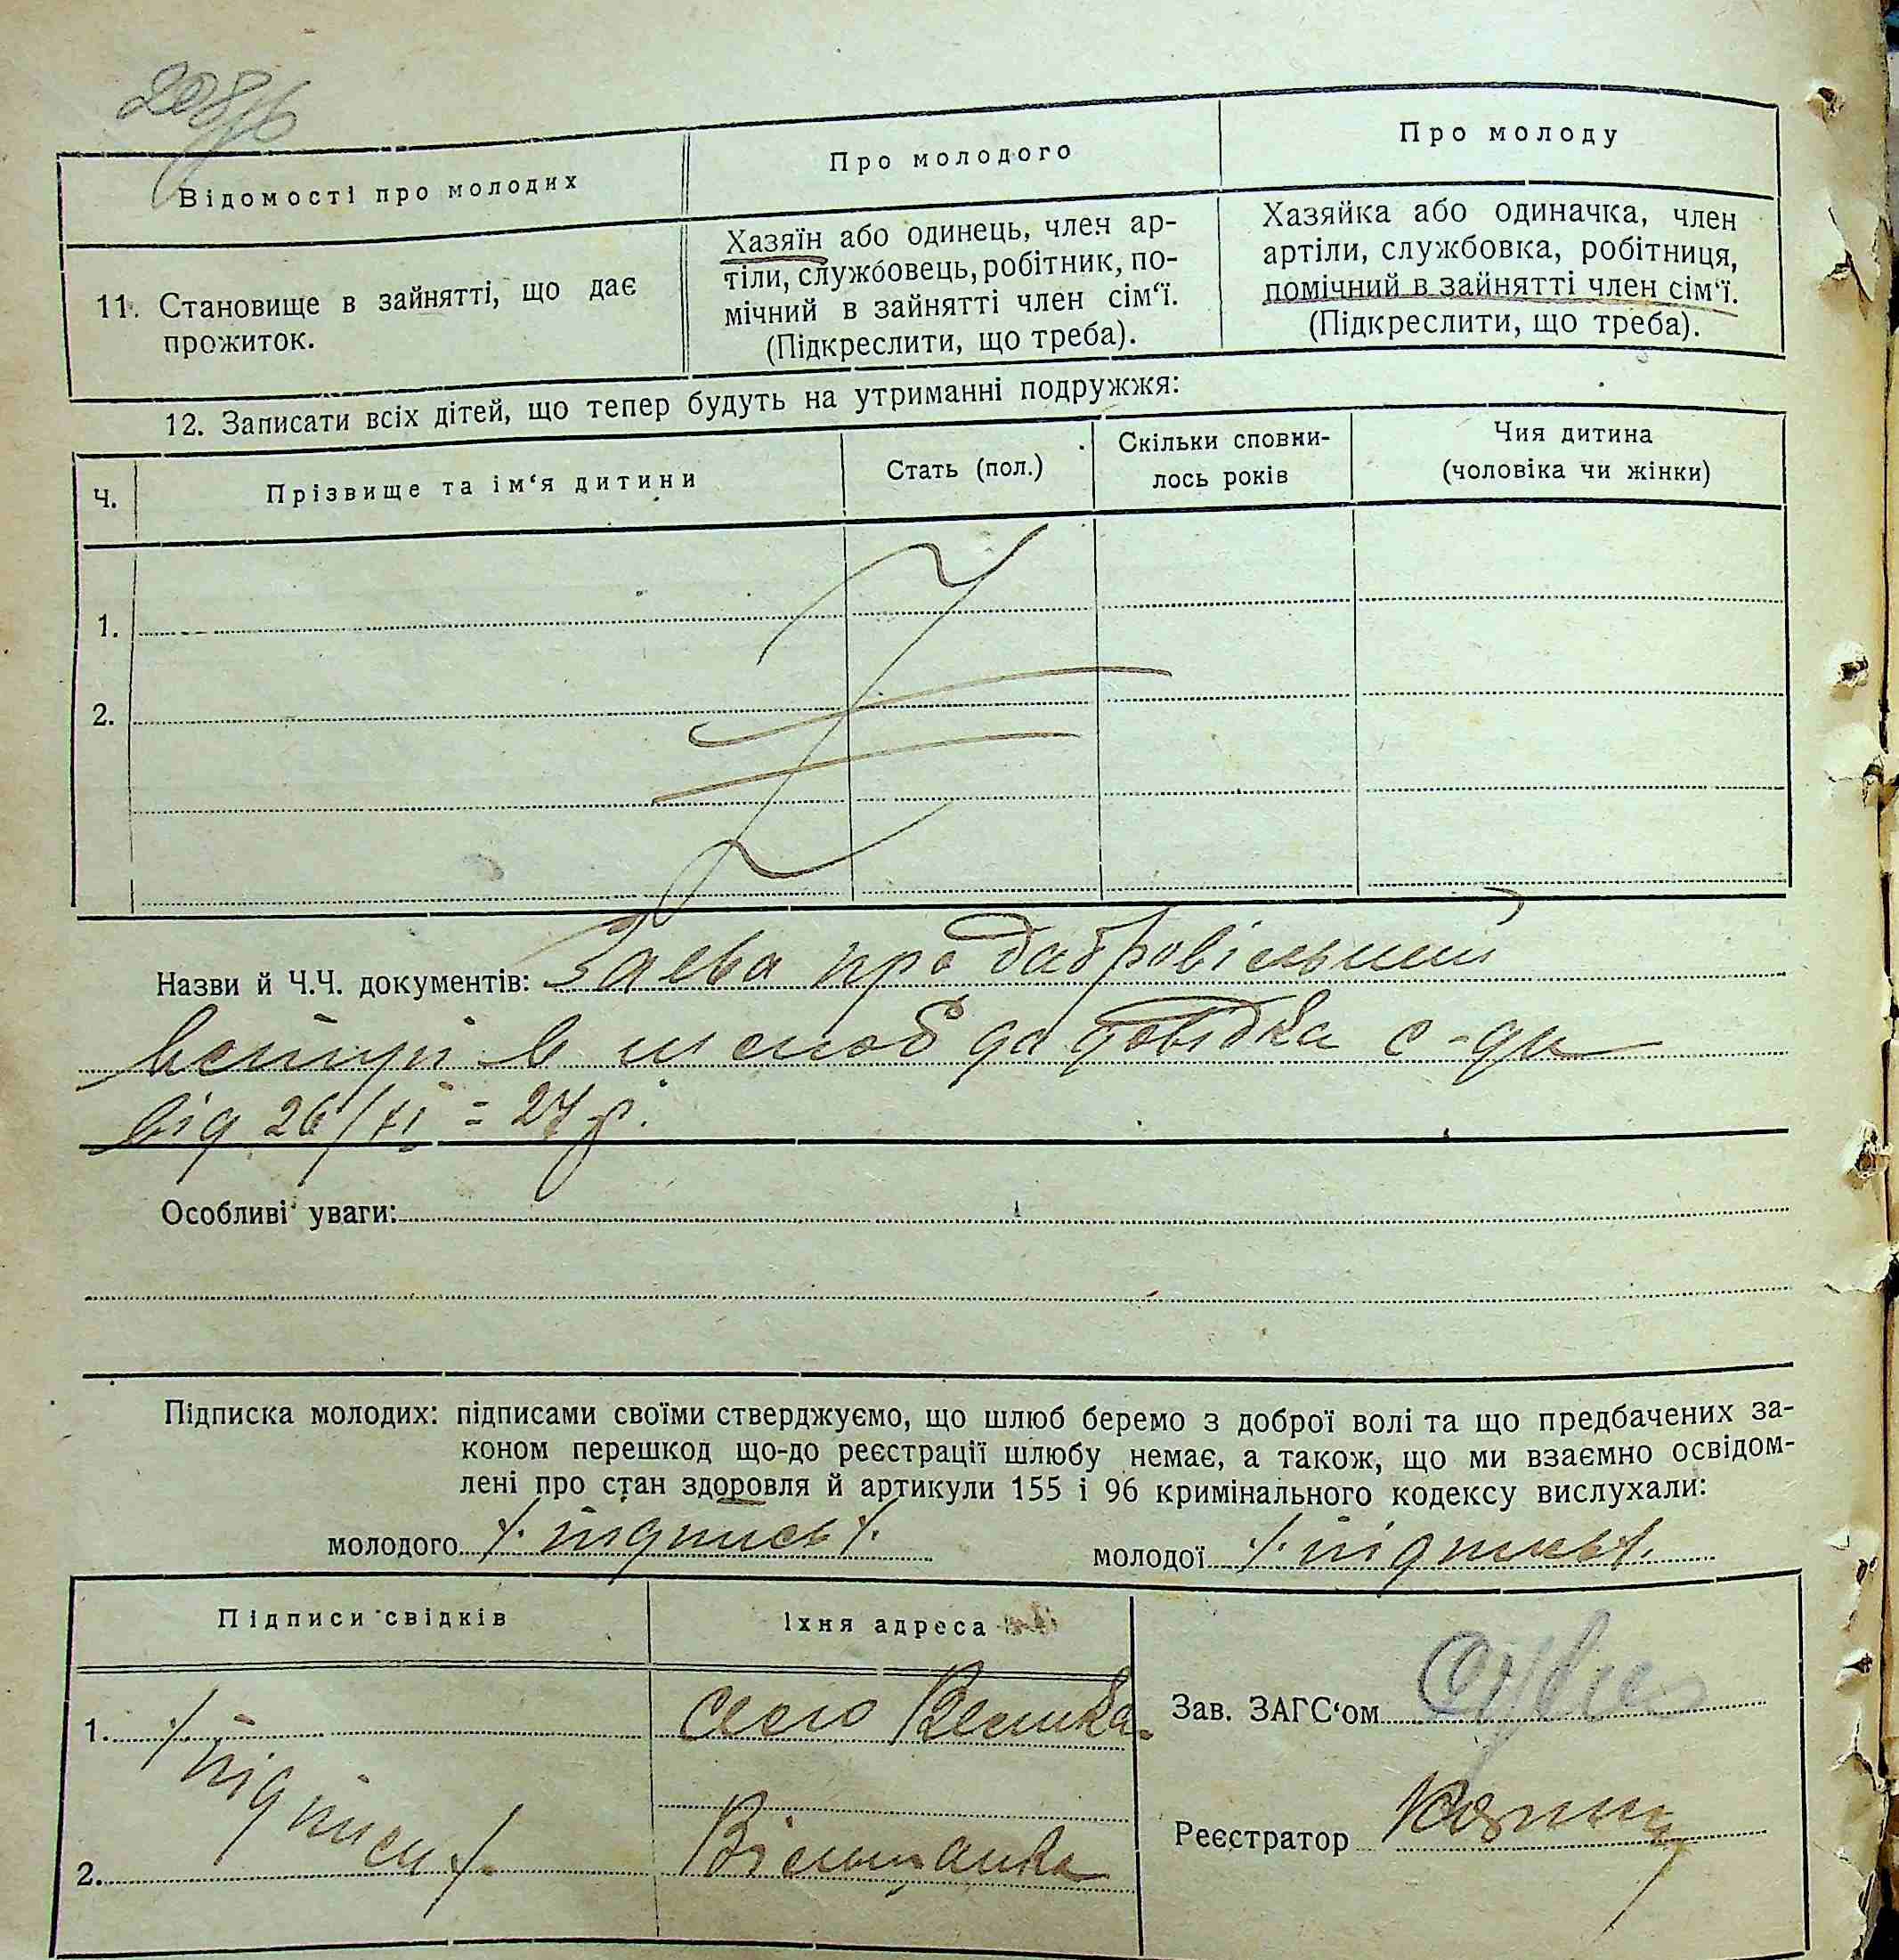 208/16
Відомості про молодих
Про молодого
Про молоду
11. Становище в зайнятті, що дає
прожиток.
Хазяїн або одинець, член ар-
тіли, службовець, робітник, по-
мічний в зайнятті член сім‘ї.
(Підкреслити, що треба).
Хазяйка або одиначка, член
артіли, службовка, робітниця,
помічний в зайнятті член сім‘ї.
(Підкреслити, що треба).
12. Записати всіх дітей, що тепер будуть на утриманні подружжя:
Ч.
Прізвище та ім‘я дитини
Стать (пол.)
Скільки сповни-
лось років
Чия дитина
(чоловіка чи жінки)
1.
2.
Назви й Ч.Ч. документів: Заява про добровільний
вступ в шлюб да довідка с-ди
від 26/XI - 27 р.
Особливі уваги:
Підписка молодих: підписами своїми стверджуємо, що шлюб беремо з доброї волі та що предбачених за-
коном перешкод що-до реєстрації шлюбу немає, а також, що ми взаємно освідом-
лені про стан здоровля й артикули 155 і 96 кримінального кодексу вислухали:
молодого /. підпись /.
молодої /. підпись /.
Підписи свідків
Їхня адреса
1. /. підписи /.
село Велика
2.
Вільшанка
Зав. ЗАГС‘ом
Реєстратор